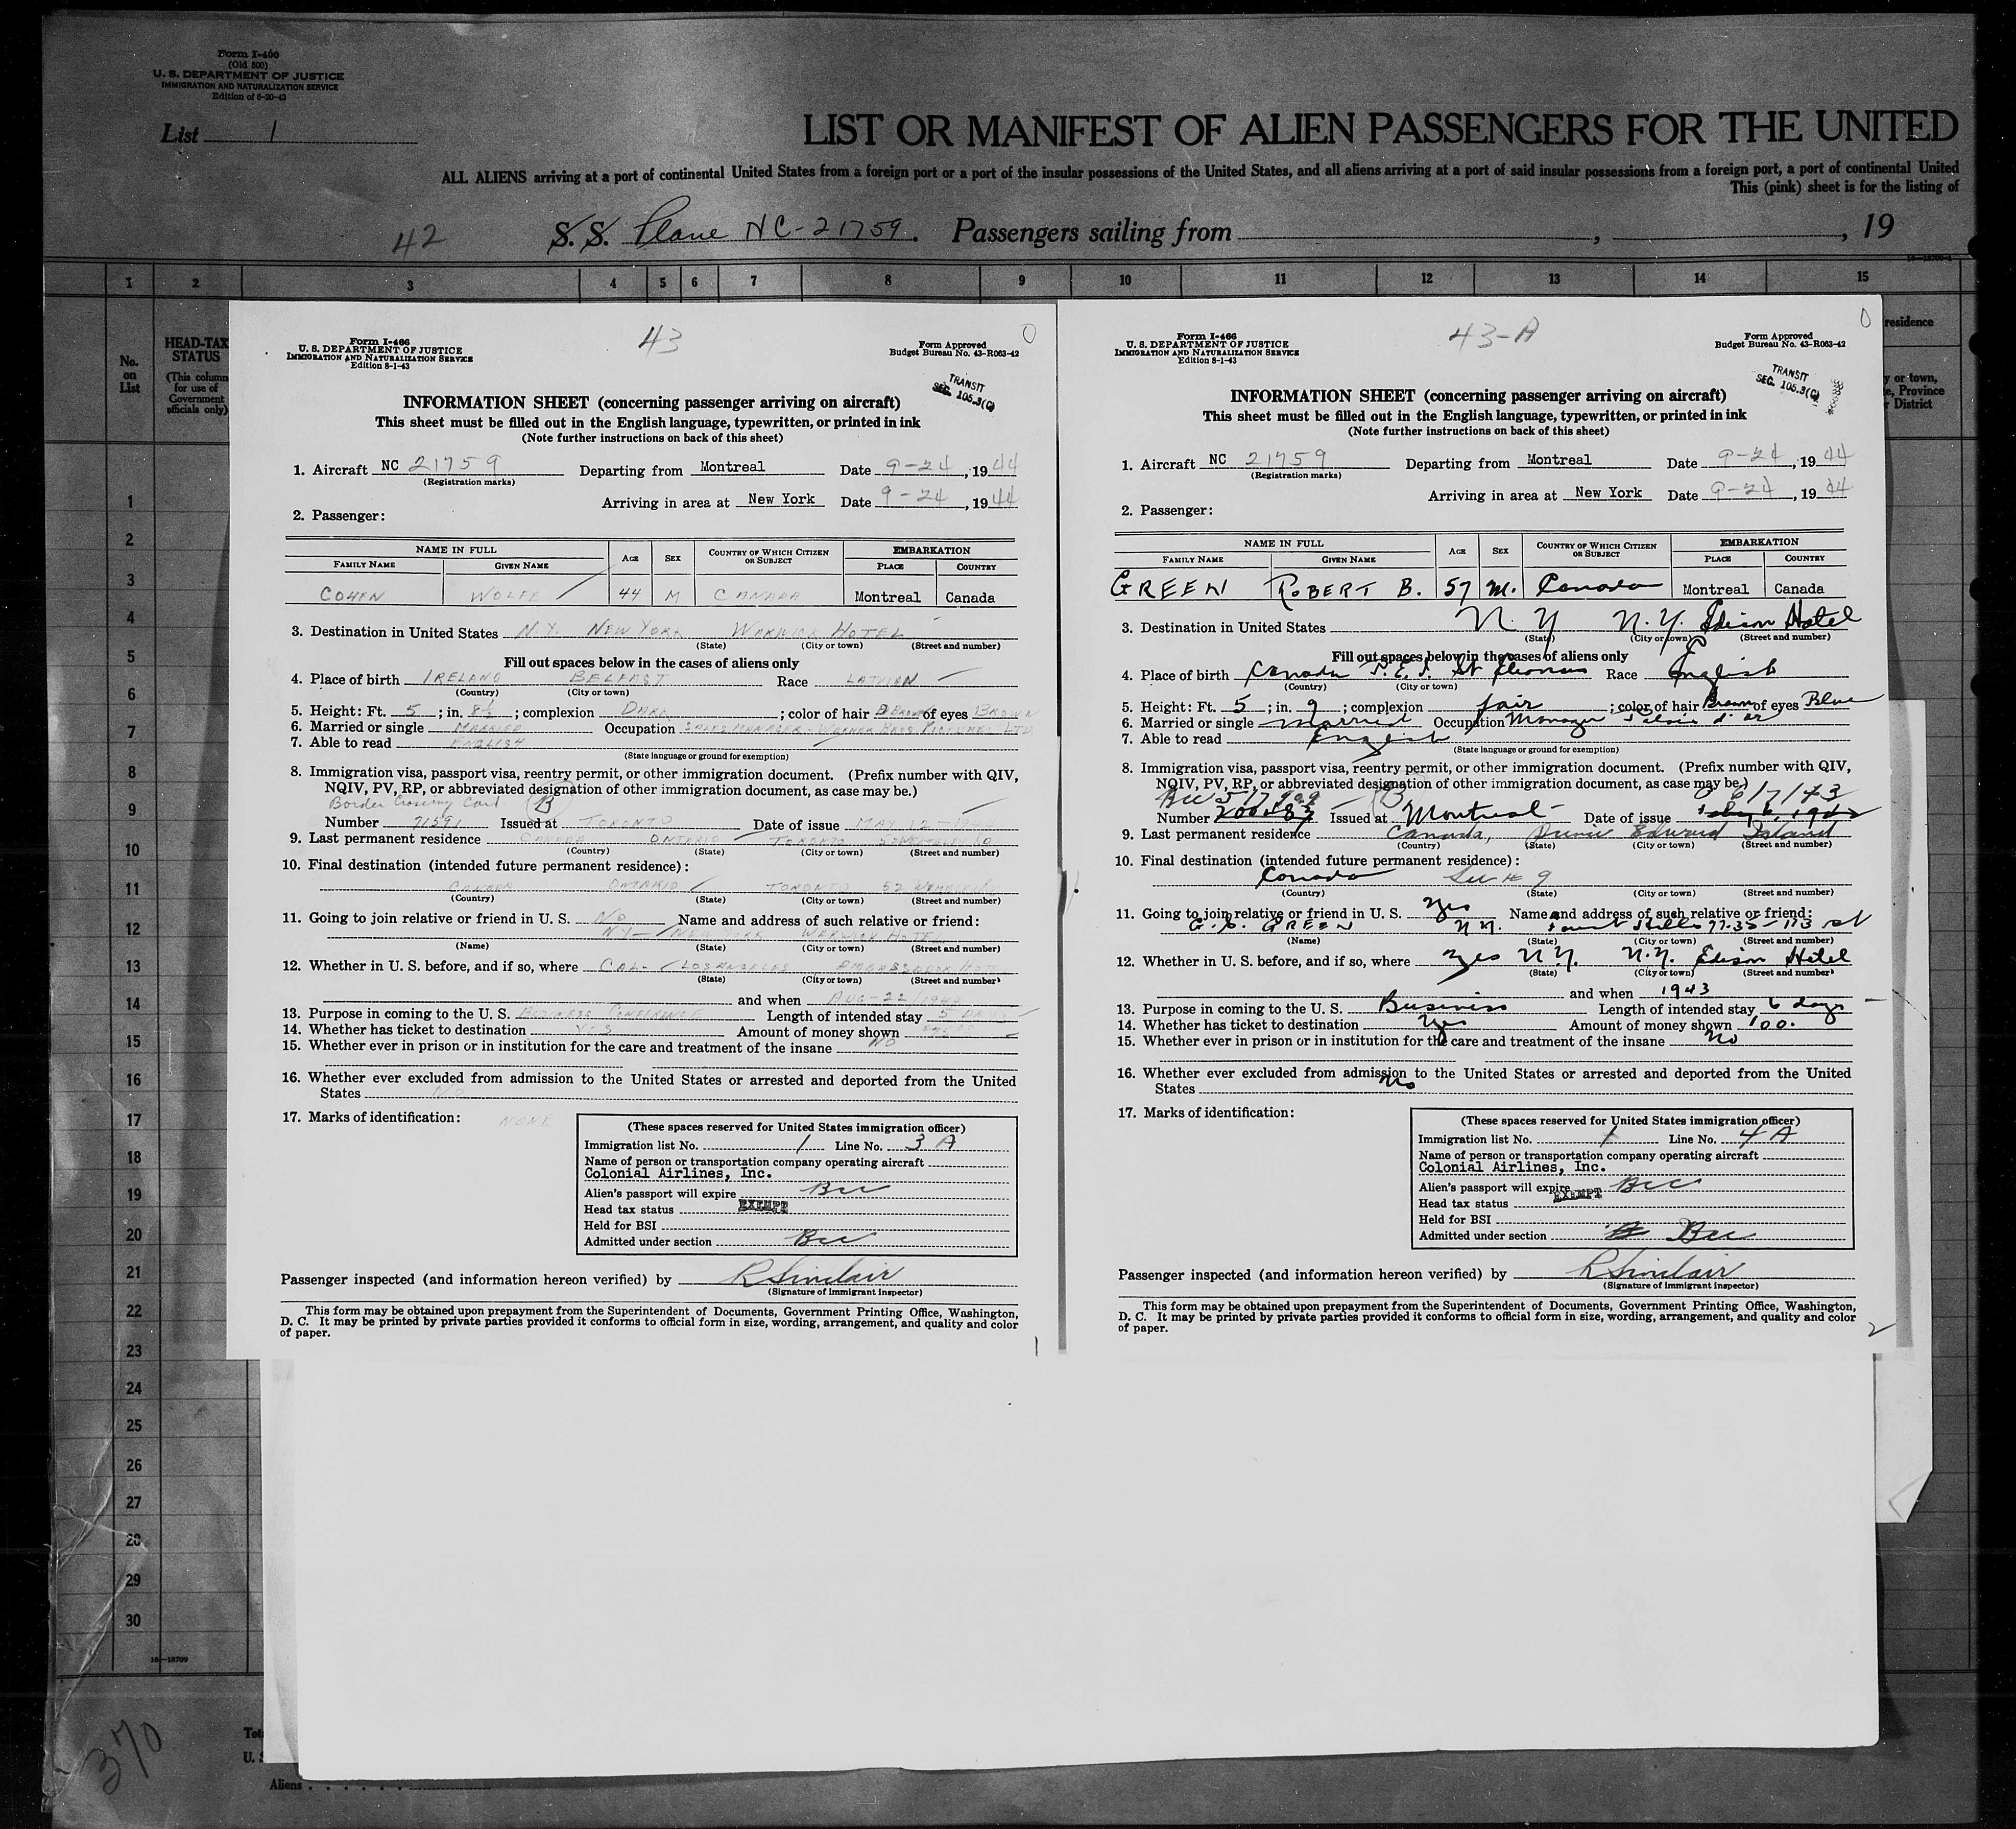 Form I-400
(Old 500)
U. S. DEPARTMENT OF JUSTICE
IMMIGRATION AND NATURALIZATION SERVICE
Edition of 6-20-42
List 1
LIST OR MANIFEST OF ALIEN PASSENGERS FOR THE UNITED
ALL ALIENS arriving at a port of continental United States from a foreign port or a port of the insular possessions of the United States, and all aliens arriving at a port of said insular possessions from a foreign port, a port of continental United
This (pink) sheet is for the listing of
42 S. S. Plane NC-21759. Passengers sailing from , , 19
1 2 3 4 5 6 7 8 9 10 11 12 13 14 15
No. on List
HEAD-TAX STATUS
(This column for use of Government officials only)
residence
y or town,
e, Province
r District
1
2
3
4
5
6
7
8
9
10
11
12
13
14
15
16
17
18
19
20
21
22
23
24
25
26
27
28
29
30
16—18709
370
Tot
U. S
Aliens
Form I-466
U. S. DEPARTMENT OF JUSTICE
IMMIGRATION AND NATURALIZATION SERVICE
Edition 8-1-43
43
0
Form Approved
Budget Bureau No. 43-R063-42
TRANSIT
SEC. 105.3(C)
INFORMATION SHEET (concerning passenger arriving on aircraft)
This sheet must be filled out in the English language, typewritten, or printed in ink
(Note further instructions on back of this sheet)
1. Aircraft NC 21759 Departing from Montreal Date 9-24, 1944
(Registration marks)
Arriving in area at New York Date 9-24, 1944
2. Passenger:
NAME IN FULL AGE SEX COUNTRY OF WHICH CITIZEN OR SUBJECT EMBARKATION
FAMILY NAME GIVEN NAME PLACE COUNTRY
COHEN WOLFE 44 M CANADA Montreal Canada
3. Destination in United States N.Y. NEW YORK WARWICK HOTEL
(State) (City or town) (Street and number)
Fill out spaces below in the cases of aliens only
4. Place of birth IRELAND BELFAST Race LATVIAN
(Country) (City or town)
5. Height: Ft. 5; in. 8½; complexion DARK; color of hair BROWN of eyes BROWN
6. Married or single MARRIED Occupation SALES MANAGER - WARNER BROS PICTURES LTD
7. Able to read ENGLISH
(State language or ground for exemption)
8. Immigration visa, passport visa, reentry permit, or other immigration document. (Prefix number with QIV,
NQIV, PV, RP, or abbreviated designation of other immigration document, as case may be.)
Border Crossing Card B
Number 71591 Issued at TORONTO Date of issue MAY 12-
9. Last permanent residence CANADA ONTARIO TORONTO
(Country) (State) (City or town) (Street and number)
10. Final destination (intended future permanent residence):
CANADA ONTARIO TORONTO 52
(Country) (State) (City or town) (Street and number)
11. Going to join relative or friend in U. S. No Name and address of such relative or friend:
NY- NEW YORK WARWICK HOTEL
(Name) (State) (City or town) (Street and number)
12. Whether in U. S. before, and if so, where CAL- LOS ANGELES AMBASSADOR HOTEL
(State) (City or town) (Street and number)
and when AUG-22/
13. Purpose in coming to the U. S. BUSINESS CONFERENCE Length of intended stay 5 DAYS
14. Whether has ticket to destination YES Amount of money shown
15. Whether ever in prison or in institution for the care and treatment of the insane NO
16. Whether ever excluded from admission to the United States or arrested and deported from the United
States No
17. Marks of identification: NONE
(These spaces reserved for United States immigration officer)
Immigration list No. 1 Line No. 3 A
Name of person or transportation company operating aircraft
Colonial Airlines, Inc.
Alien's passport will expire Bcc
Head tax status EXEMPT
Held for BSI
Admitted under section Bcc
Passenger inspected (and information hereon verified) by R Sinclair
(Signature of immigrant inspector)
This form may be obtained upon prepayment from the Superintendent of Documents, Government Printing Office, Washington,
D. C. It may be printed by private parties provided it conforms to official form in size, wording, arrangement, and quality and color
of paper.
Form I-466
U. S. DEPARTMENT OF JUSTICE
IMMIGRATION AND NATURALIZATION SERVICE
Edition 8-1-43
43-A
0
Form Approved
Budget Bureau No. 43-R063-42
TRANSIT
SEC. 105.3(C)
INFORMATION SHEET (concerning passenger arriving on aircraft)
This sheet must be filled out in the English language, typewritten, or printed in ink
(Note further instructions on back of this sheet)
1. Aircraft NC 21759 Departing from Montreal Date 9-24, 1944
(Registration marks)
Arriving in area at New York Date 9-24, 1944
2. Passenger:
NAME IN FULL AGE SEX COUNTRY OF WHICH CITIZEN OR SUBJECT EMBARKATION
FAMILY NAME GIVEN NAME PLACE COUNTRY
GREEN ROBERT B. 57 M. Canada Montreal Canada
3. Destination in United States N.Y N.Y. Edison Hotel
(State) (City or town) (Street and number)
Fill out spaces below in the cases of aliens only
4. Place of birth Canada P.E.I. St Eleanors Race English
(Country) (City or town)
5. Height: Ft. 5; in. 9; complexion fair; color of hair Brown of eyes Blue
6. Married or single Married Occupation Manager Palais d'or
7. Able to read English
(State language or ground for exemption)
8. Immigration visa, passport visa, reentry permit, or other immigration document. (Prefix number with QIV,
NQIV, PV, RP, or abbreviated designation of other immigration document, as case may be.)
Bcc B 6/7/43
Number Issued at Montreal Date of issue
9. Last permanent residence Canada, Prince Edward Island
(Country) (State) (City or town) (Street and number)
10. Final destination (intended future permanent residence):
Canada See # 9
(Country) (State) (City or town) (Street and number)
11. Going to join relative or friend in U. S. Yes Name and address of such relative or friend:
G.B. GREEN N.Y. Forest Hills 77-35-113 St
(Name) (State) (City or town) (Street and number)
12. Whether in U. S. before, and if so, where Yes N.Y. N.Y. Edison Hotel
(State) (City or town) (Street and number)
and when 1943
13. Purpose in coming to the U. S. Business Length of intended stay 6 days
14. Whether has ticket to destination Yes Amount of money shown 100.
15. Whether ever in prison or in institution for the care and treatment of the insane No
16. Whether ever excluded from admission to the United States or arrested and deported from the United
States No
17. Marks of identification:
(These spaces reserved for United States immigration officer)
Immigration list No. 1 Line No. 4 A
Name of person or transportation company operating aircraft
Colonial Airlines, Inc.
Alien's passport will expire Bcc
Head tax status EXEMPT
Held for BSI
Admitted under section Bcc
Passenger inspected (and information hereon verified) by R Sinclair
(Signature of immigrant inspector)
This form may be obtained upon prepayment from the Superintendent of Documents, Government Printing Office, Washington,
D. C. It may be printed by private parties provided it conforms to official form in size, wording, arrangement, and quality and color
of paper.
2